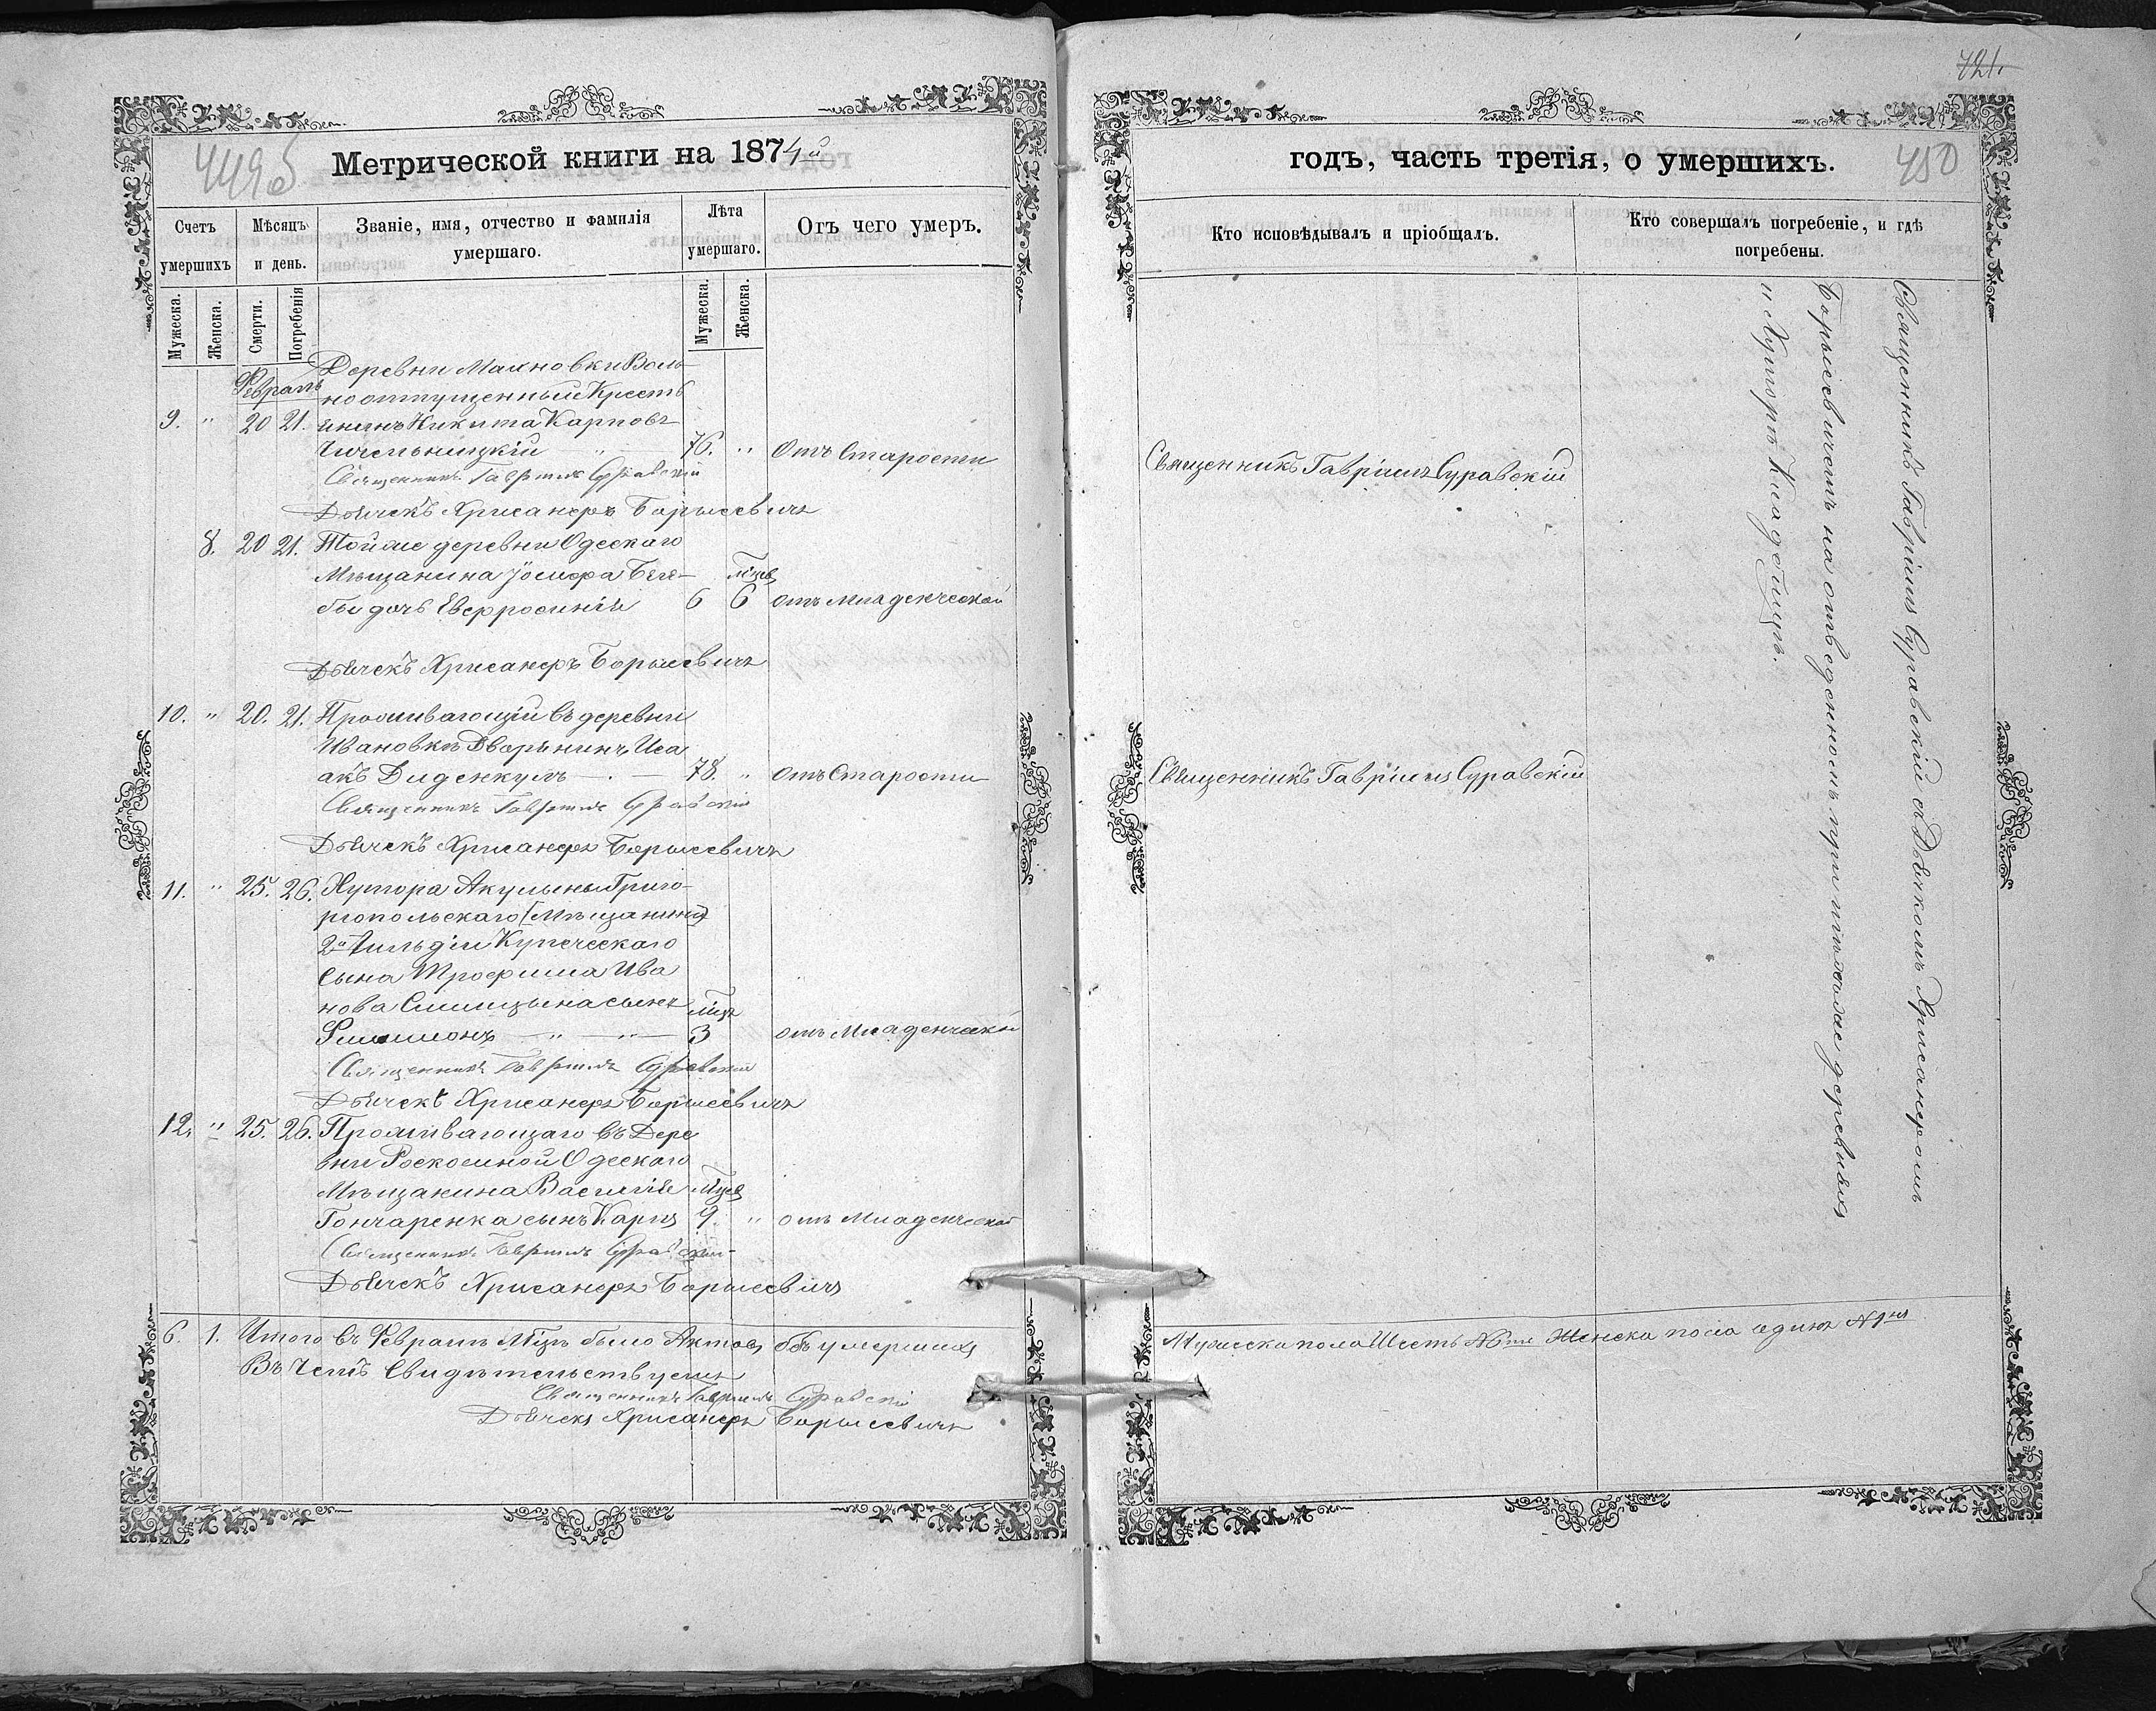 449об
Метрической книги на 1874й
Счетъ умершихъ
Мѣсяцъ и день.
Званіе, имя, отчество и фамилія умершаго.
Лѣта умершаго.
Отъ чего умеръ.
Мужеска.
Женска.
Смерти.
Погребенія
Мужеска.
Женска.
Февраль
Деревни Махновки Воль-
ноотпущенный Кресть
9. " 20 21. янинъ Никита Карповъ
Чичельницкій " 76. " Отъ Старости
Священникъ Гавріилъ Суравскій
Дьячекъ Хрисанфъ Борысевичъ
8. 20 21. Тойже деревни Одескаго
Мѣщанина Іосифа
бы дочь Евфросинія 6 6 отъ младенческой
Дьячекъ Хрисанфъ Борысевичъ
10. " 20. 21. Проживающій въ деревни
Ивановкѣ Дворянинъ Иса
акъ Диденкулъ 78. " отъ Старости
Священникъ Гавріилъ Суравскій
Дьячекъ Хрисанфъ Борысевичъ
11. " 25. 26. Хутора Акулыны Григо-
ріопольскаго [Мѣщанина]
2й Гильдіи Купеческаго
Сына Трофима Ива
нова Синицына сынъ Мцъ
Филимонъ " " 3 отъ Младенческой
Священникъ Гавріилъ Суравскій
Дьячекъ Хрисанфъ Борысевичъ
12. " 25. 26. Проживающаго въ Дере
вни Роскошной Одескаго
Мѣщанина Василія Мцев
Гончаренка сынъ Карпъ 9. " отъ Младенческой
Священникъ Гавріилъ Суравскій
Дьячекъ Хрисанфъ Борысевичъ
6. 1. Итого въ Февралѣ Мцѣ было Актовъ объ умершихъ
Въ Чемъ Свидѣтельствуемъ
Священникъ Гавріилъ Суравскій
Дьячекъ Хрисанфъ Борысевичъ
721.
годъ, часть третія, о умершихъ.
450
Кто исповѣдывалъ и пріобщалъ.
Кто совершалъ погребеніе, и гдѣ погребены.
Священникъ Гавріилъ Суравскій
Священникъ Гавріилъ Суравскій
Священникъ Гавріилъ Суравскій съ Дьячкомъ Хрисанфомъ
Борысевичемъ на отведенномъ при деревняхъ
и Хуторѣ Кладбищѣ.
Мужеска пола Шесть №6ть Женска пола единъ №1нъ